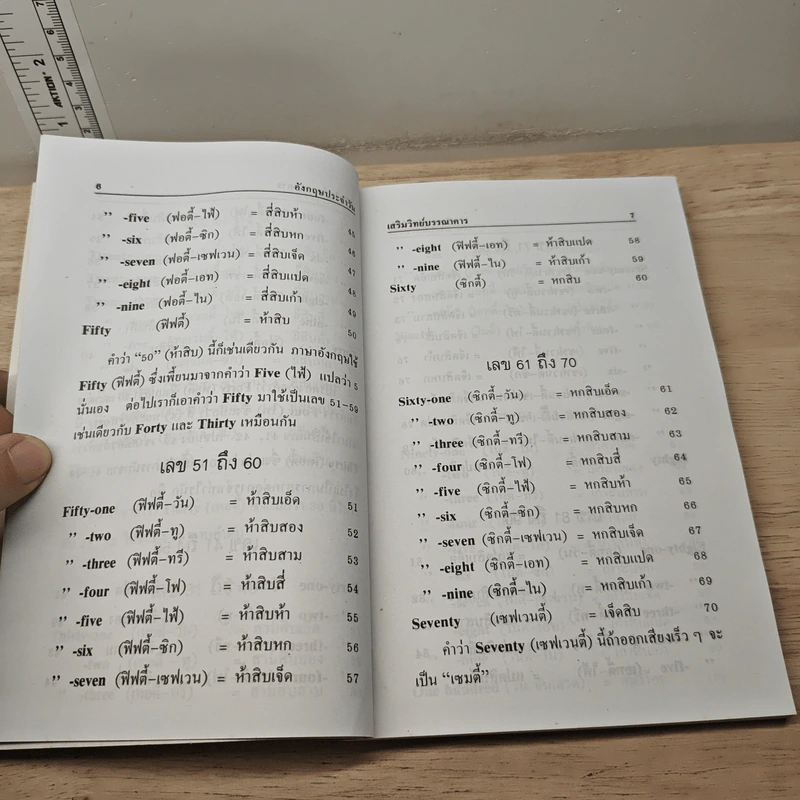 AKTION
1
2
6 อังกฤษประจำวัน
” -five (ฟอตี้-ไฟ้) = สี่สิบห้า 45
” -six (ฟอตี้-ซิก) = สี่สิบหก 46
” -seven (ฟอตี้-เซฟเวน) = สี่สิบเจ็ด 47
” -eight (ฟอตี้-เอท) = สี่สิบแปด 48
” -nine (ฟอตี้-ไน) = สี่สิบเก้า 49
Fifty (ฟิฟตี้) = ห้าสิบ 50
คำว่า “50” (ห้าสิบ) นี้ก็เช่นเดียวกัน ภาษาอังกฤษใช้
Fifty (ฟิฟตี้) ซึ่งเพี้ยนมาจากคำว่า Five (ไฟ้) แปลว่า 5
นั่นเอง ต่อไปเราก็เอาคำว่า Fifty มาใช้เป็นเลข 51-59
เช่นเดียวกับ Forty และ Thirty เหมือนกัน
เลข 51 ถึง 60
Fifty-one (ฟิฟตี้-วัน) = ห้าสิบเอ็ด 51
” -two (ฟิฟตี้-ทู) = ห้าสิบสอง 52
” -three (ฟิฟตี้-ทรี) = ห้าสิบสาม 53
” -four (ฟิฟตี้-โฟ) = ห้าสิบสี่ 54
” -five (ฟิฟตี้-ไฟ้) = ห้าสิบห้า 55
” -six (ฟิฟตี้-ซิก) = ห้าสิบหก 56
” -seven (ฟิฟตี้-เซฟเวน) = ห้าสิบเจ็ด 57
เสริมวิทย์บรรณาคาร 7
” -eight (ฟิฟตี้-เอท) = ห้าสิบแปด 58
” -nine (ฟิฟตี้-ไน) = ห้าสิบเก้า 59
Sixty (ซิกตี้) = หกสิบ 60
เลข 61 ถึง 70
Sixty-one (ซิกตี้-วัน) = หกสิบเอ็ด 61
” -two (ซิกตี้-ทู) = หกสิบสอง 62
” -three (ซิกตี้-ทรี) = หกสิบสาม 63
” -four (ซิกตี้-โฟ) = หกสิบสี่ 64
” -five (ซิกตี้-ไฟ้) = หกสิบห้า 65
” -six (ซิกตี้-ซิก) = หกสิบหก 66
” -seven (ซิกตี้-เซฟเวน) = หกสิบเจ็ด 67
” -eight (ซิกตี้-เอท) = หกสิบแปด 68
” -nine (ซิกตี้-ไน) = หกสิบเก้า 69
Seventy (เซฟเวนตี้) = เจ็ดสิบ 70
คำว่า Seventy (เซฟเวนตี้) นี้ถ้าออกเสียงเร็ว ๆ จะ
เป็น “เซมตี้”